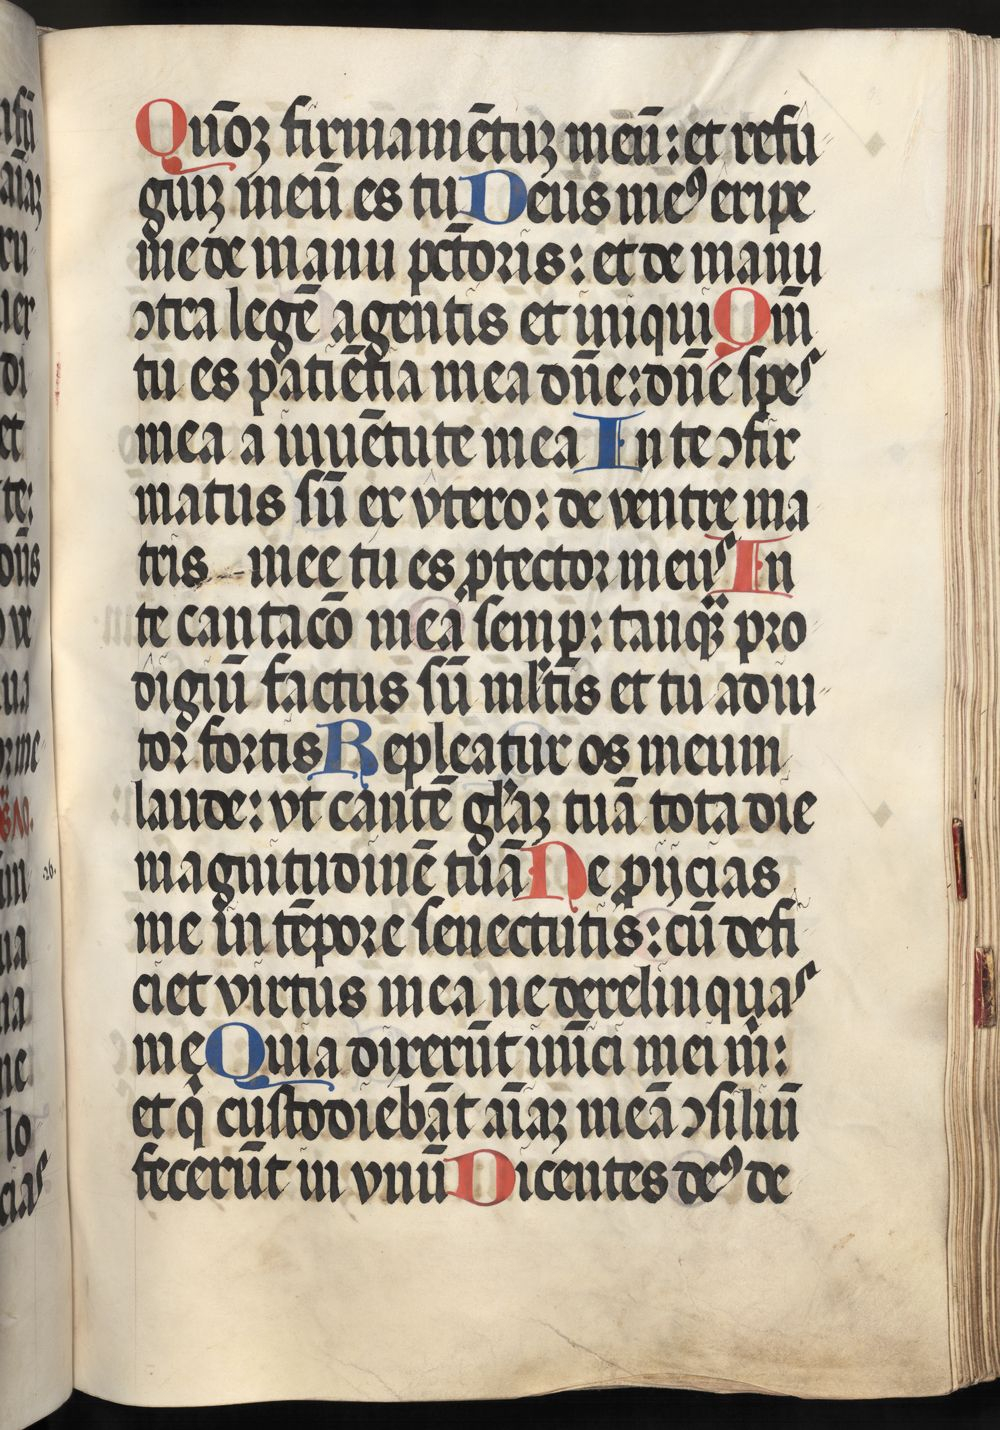 Qūoꝫ firmamētuꝫ meū: et refu
giuꝫ meū es tu Deus meꝰ eripe
me de manu pctōris: et de manu
ↄtra legē agentis et iniqui Qm̄
tu es patiētia mea dn̄e: dn̄e spes
mea a iuuētute mea In te ↄfir
matus sū ex vtero: de ventre ma
tris mee tu es ꝓtector meus In
te cantacō mea semꝑ: tanqꝫ pro
digiū factus sū ml̄tis et tu adiu
tor fortis Repleatur os meum
laude: vt cantē gl̄aꝫ tuā tota die
magnitudinē tuā Ne ꝓijcias
me in tēpore senectutis: cū defi
ciet virtus mea ne derelinquas
me Quia dixerūt inīci mei m̄:
et q̇ custodiebāt aīaꝫ meā ↄsiliū
fecerūt in vnū Dicentes deꝰ de
ꝰ26ꝰ